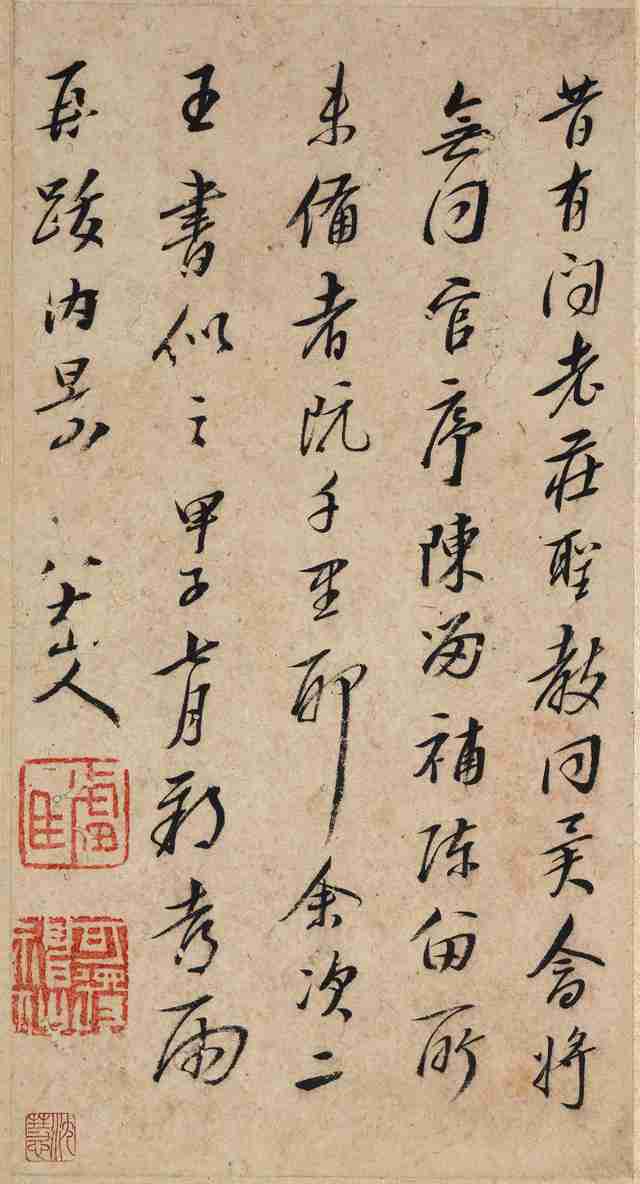 昔有問老莊聖教同異會將
無同官序陳留補陳留所
未備者阮千里耶余次二
王書似之甲子七月新喜雨
再跋內景 八大山人
可得神仙